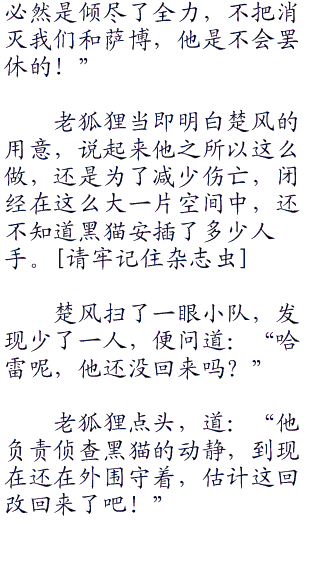 必然是倾尽了全力，不把消
灭我们和萨博，他是不会罢
休的！”
老狐狸当即明白楚风的
用意，说起来他之所以这么
做，还是为了减少伤亡，闭
经在这么大一片空间中，还
不知道黑猫安插了多少人
手。[请牢记住杂志虫]
楚风扫了一眼小队，发
现少了一人，便问道：“哈
雷呢，他还没回来吗？”
老狐狸点头，道：“他
负责侦查黑猫的动静，到现
在还在外围守着，估计这回
改回来了吧！”